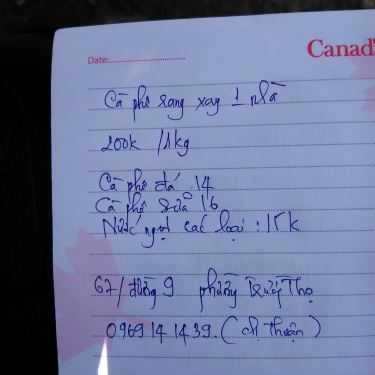 Date:
Canad
Cà phê rang xay 1 nhà
200k /1kg
Cà phê đá 14
Cà phê sữa 16
Nước ngọt các loại : 15k
67/đường 9 phường Trường Thọ
0969 14 1439. (chị Thuận)